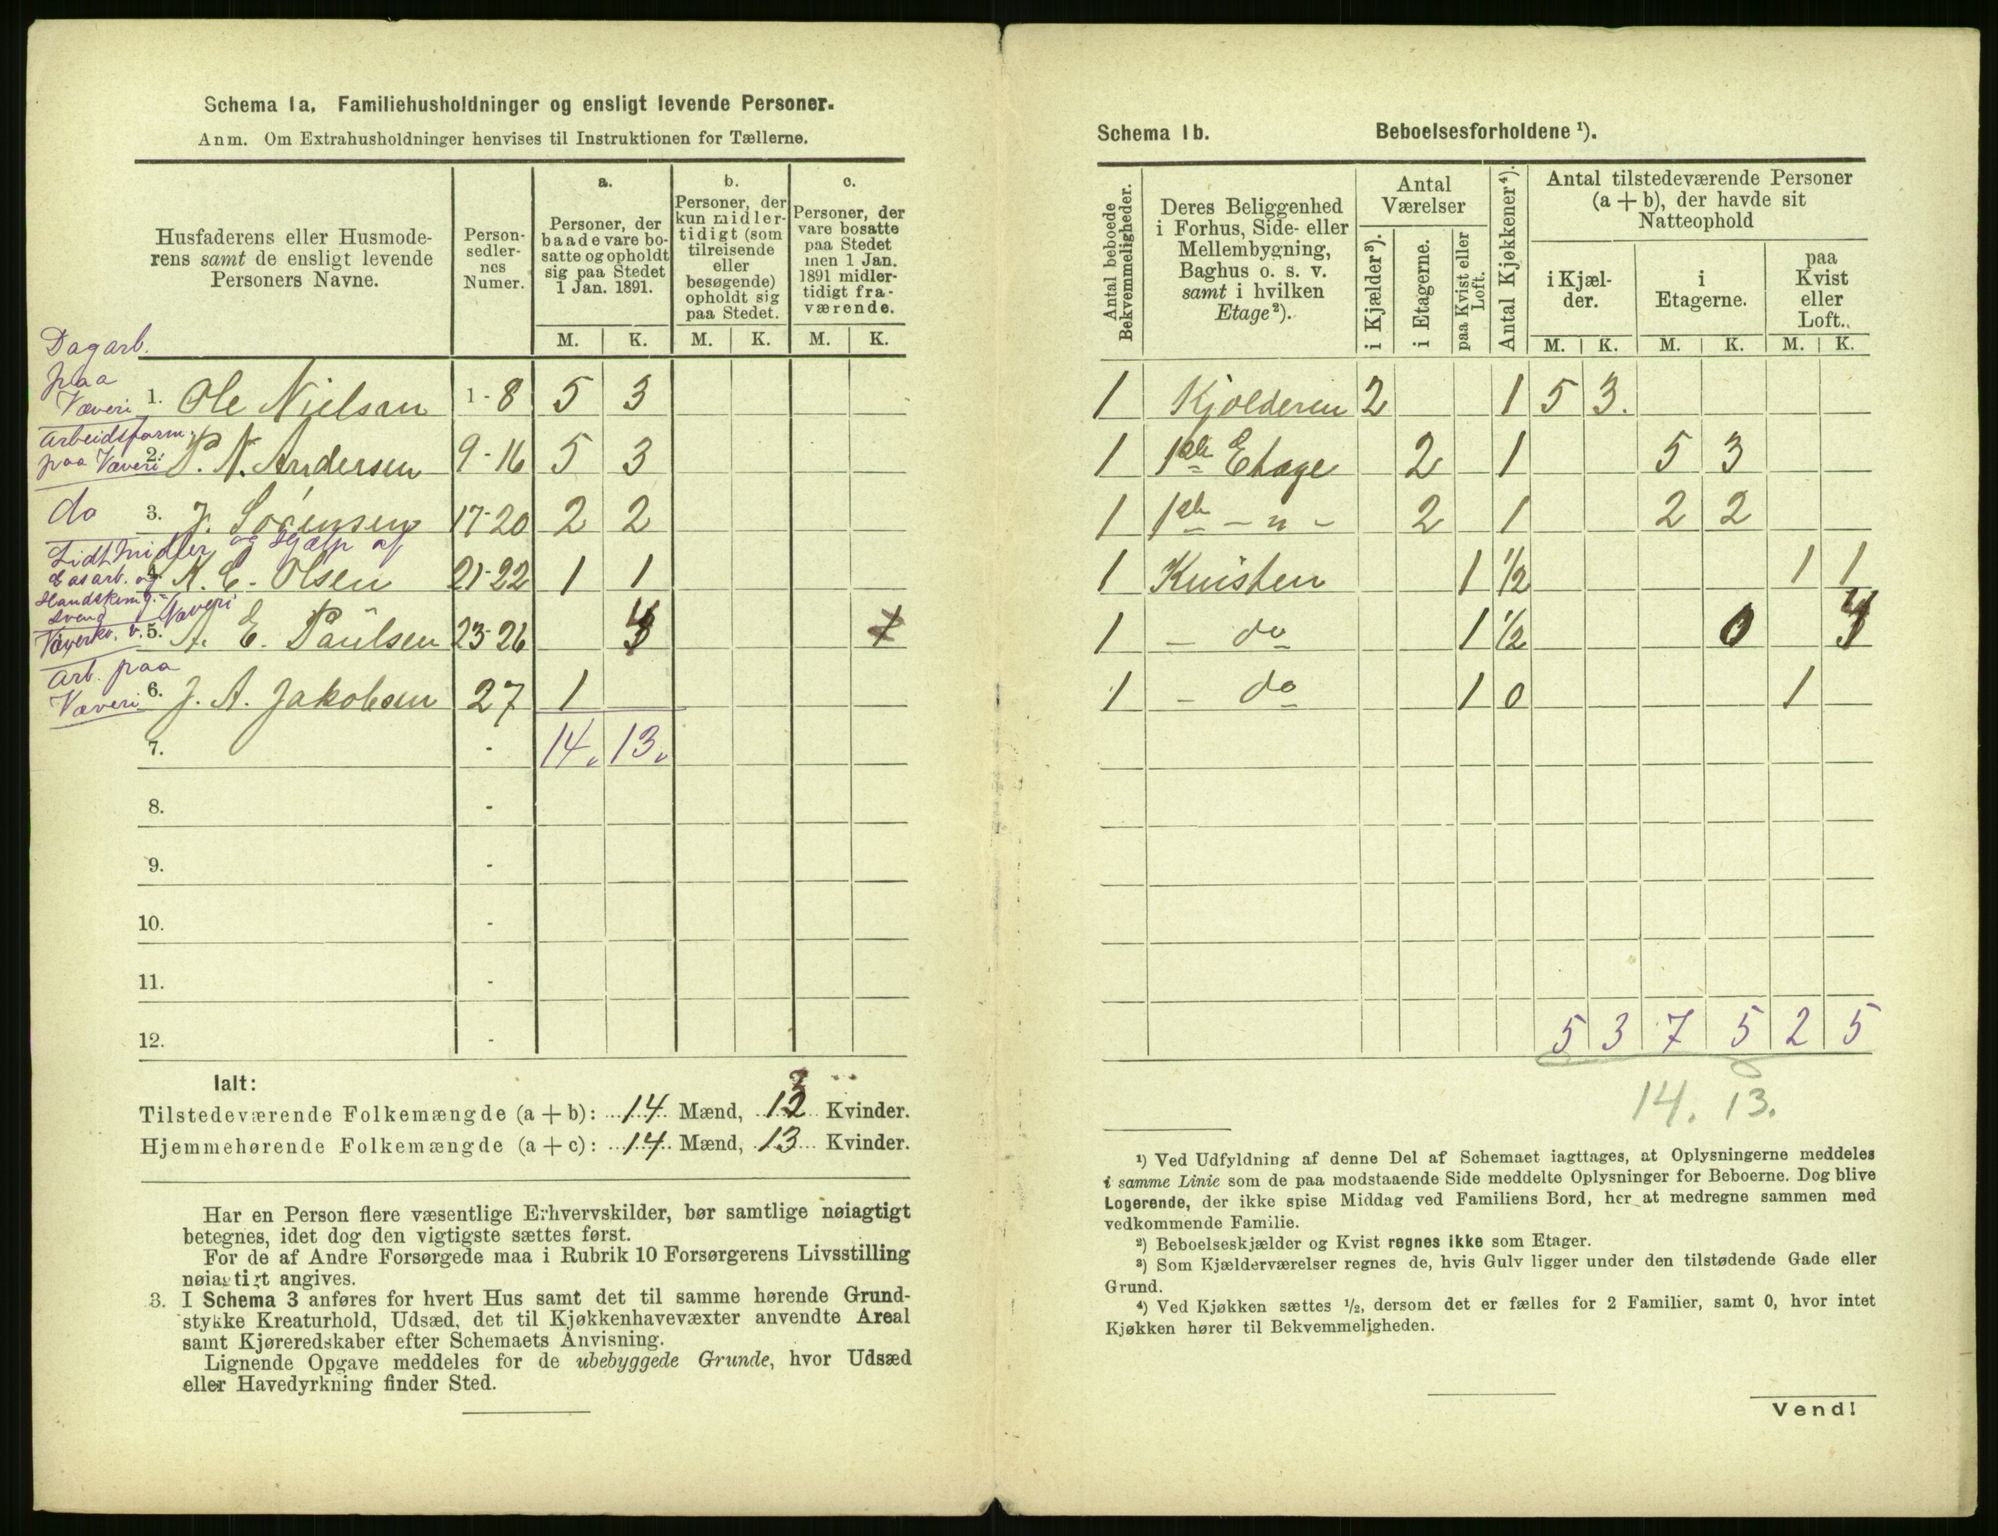 Schema 1a. Familiehusholdninger og ensligt levende Personer.
Anm. Om Extrahusholdninger henvises til Instruktionen for Tællerne.
Husfaderens eller Husmode-
rens samt de ensligt levende
Personers Navne.
Person-
sedler-
nes
Numer.
a.
Personer, der
baade vare bo-
satte og opholdt
sig paa Stedet
1 Jan. 1891.
b.
Personer, der
kun midler-
tidigt (som
tilreisende
eller
besøgende)
opholdt sig
paa Stedet.
c.
Personer, der
vare bosatte
paa Stedet
men 1 Jan.
1891 midler-
tidigt fra-
værende.
M. K. M. K. M. K.
Dagarb.
paa
Væveri
1. Ole Nielsen 1-8 5 3
Arbeidsform.
paa Væveri
2. P. N. Andersen 9-16 5 3
do
3. J. Sørensen 17-20 2 2
Lidt Midler og Hjælp af
4. K. E. Olsen 21-22 1 1
Væveri
5. A. E. Paulsen 23-26 4 1
Arb. paa
Væveri
6. J. A. Jakobsen 27 1
7. - 14. 13.
8. -
9. -
10. -
11. -
12. -
Ialt:
Tilstedeværende Folkemængde (a + b): 14 Mænd, 13 Kvinder.
Hjemmehørende Folkemængde (a + c): 14 Mænd, 13 Kvinder.
Har en Person flere væsentlige Erhvervskilder, bør samtlige nøiagtigt
betegnes, idet dog den vigtigste sættes først.
For de af Andre Forsørgede maa i Rubrik 10 Forsørgerens Livsstilling
nøiagtigt angives.
3. I Schema 3 anføres for hvert Hus samt det til samme hørende Grund-
stykke Kreaturhold, Udsæd, det til Kjøkkenhavevæxter anvendte Areal
samt Kjøreredskaber efter Schemaets Anvisning.
Lignende Opgave meddeles for de ubebyggede Grunde, hvor Udsæd
eller Havedyrkning finder Sted.
Schema 1b. Beboelsesforholdene ¹).
Antal beboede
Bekvemmeligheder.
Deres Beliggenhed
i Forhus, Side- eller
Mellembygning,
Baghus o. s. v.
samt i hvilken
Etage²).
Antal
Værelser
i Kjælder³).
i Etagerne.
paa Kvist eller
Loft.
Antal Kjøkkener⁴).
Antal tilstedeværende Personer
(a + b), der havde sit
Natteophold
i Kjæl-
der.
i
Etagerne.
paa
Kvist
eller
Loft.
M. K. M. K. M. K.
1 Kjølderen 2 1 5 3.
1 1ste Etage 2 1 5 3
1 1ste - " - 2 1 2 2
1 Kvisten 1 ½ 1 1
1 - do 1 ½ 0 4
1 - do 1 0 1
5 3 7 5 2 5
14. 13.
¹) Ved Udfyldning af denne Del af Schemaet iagttages, at Oplysningerne meddeles
i samme Linie som de paa modstaaende Side meddelte Oplysninger for Beboerne. Dog blive
Logerende, der ikke spise Middag ved Familiens Bord, her at medregne sammen med
vedkommende Familie.
²) Beboelseskjælder og Kvist regnes ikke som Etager.
³) Som Kjælderværelser regnes de, hvis Gulv ligger under den tilstødende Gade eller
Grund.
⁴) Ved Kjøkken sættes ½, dersom det er fælles for 2 Familier, samt 0, hvor intet
Kjøkken hører til Bekvemmeligheden.
Vend!